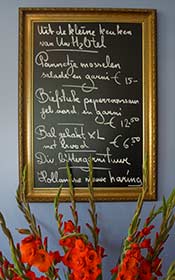 Uit de kleine keuken
van
Pannetje mosselen
salade en garni € 15-
Biefstuk pepersaus
en garni
€ 12,50
Bal gehakt XL
met brood € 6,50
Div bittergarnituur
Hollandse nieuwe haring